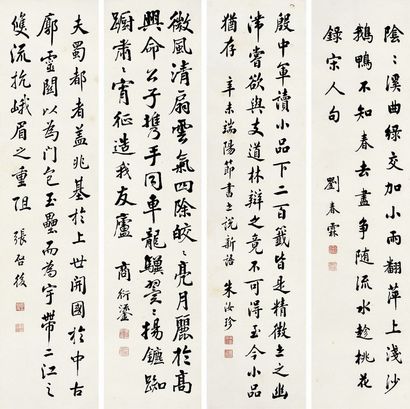 陰〻溪曲綠交加小雨翻萍上淺沙
鵝鴨不知春去盡爭隨流水趁桃花
錄宋人句 劉春霖
殷中軍讀小品下二百籤皆是精微世之幽
滯嘗欲與支道林辯之竟不可得至今小品
猶存 辛未端陽節書世說新語 朱汝珍
微風清扇雲氣四除皎〻亮月麗於高
興命公子攜手同車龍驥翼〻揚鑣踟
躕肅〻宵征造我友廬 商衍鎏
夫蜀都者蓋兆基於上世開國於中古
廓靈關以為門包玉壘而為宇帶二江之
雙流抗峨眉之重阻 張啟後